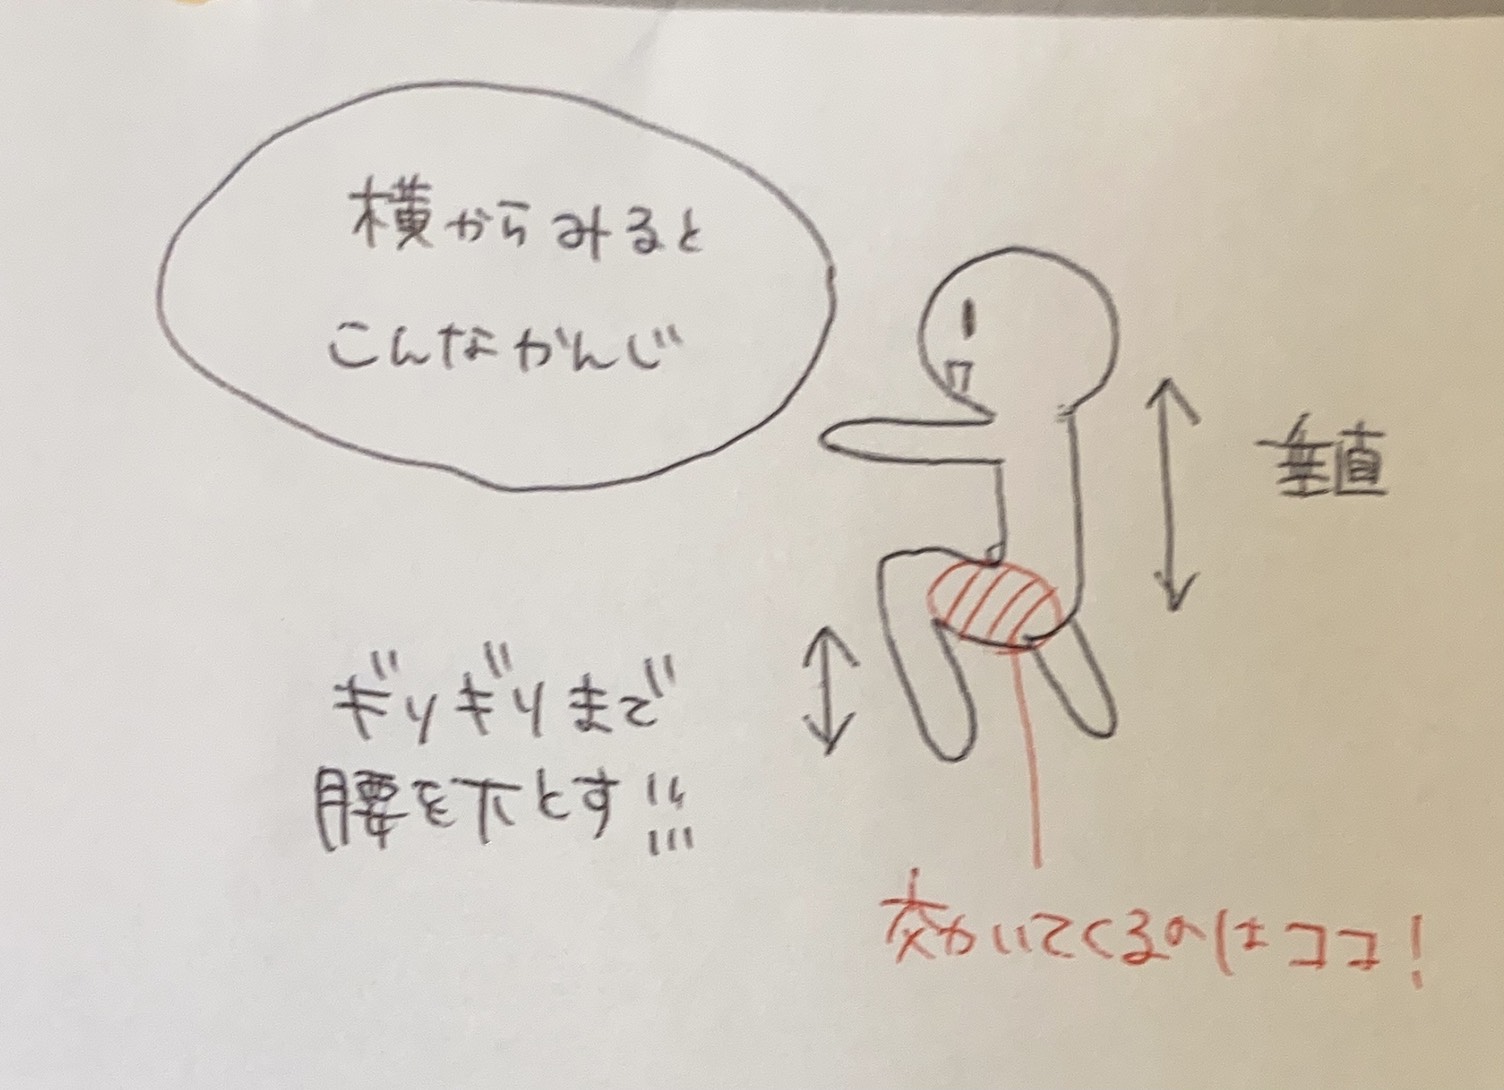 横からみると
こんなかんじ
垂直
ギリギリまで
腰を下とす!!!
効いてくるのはココ!